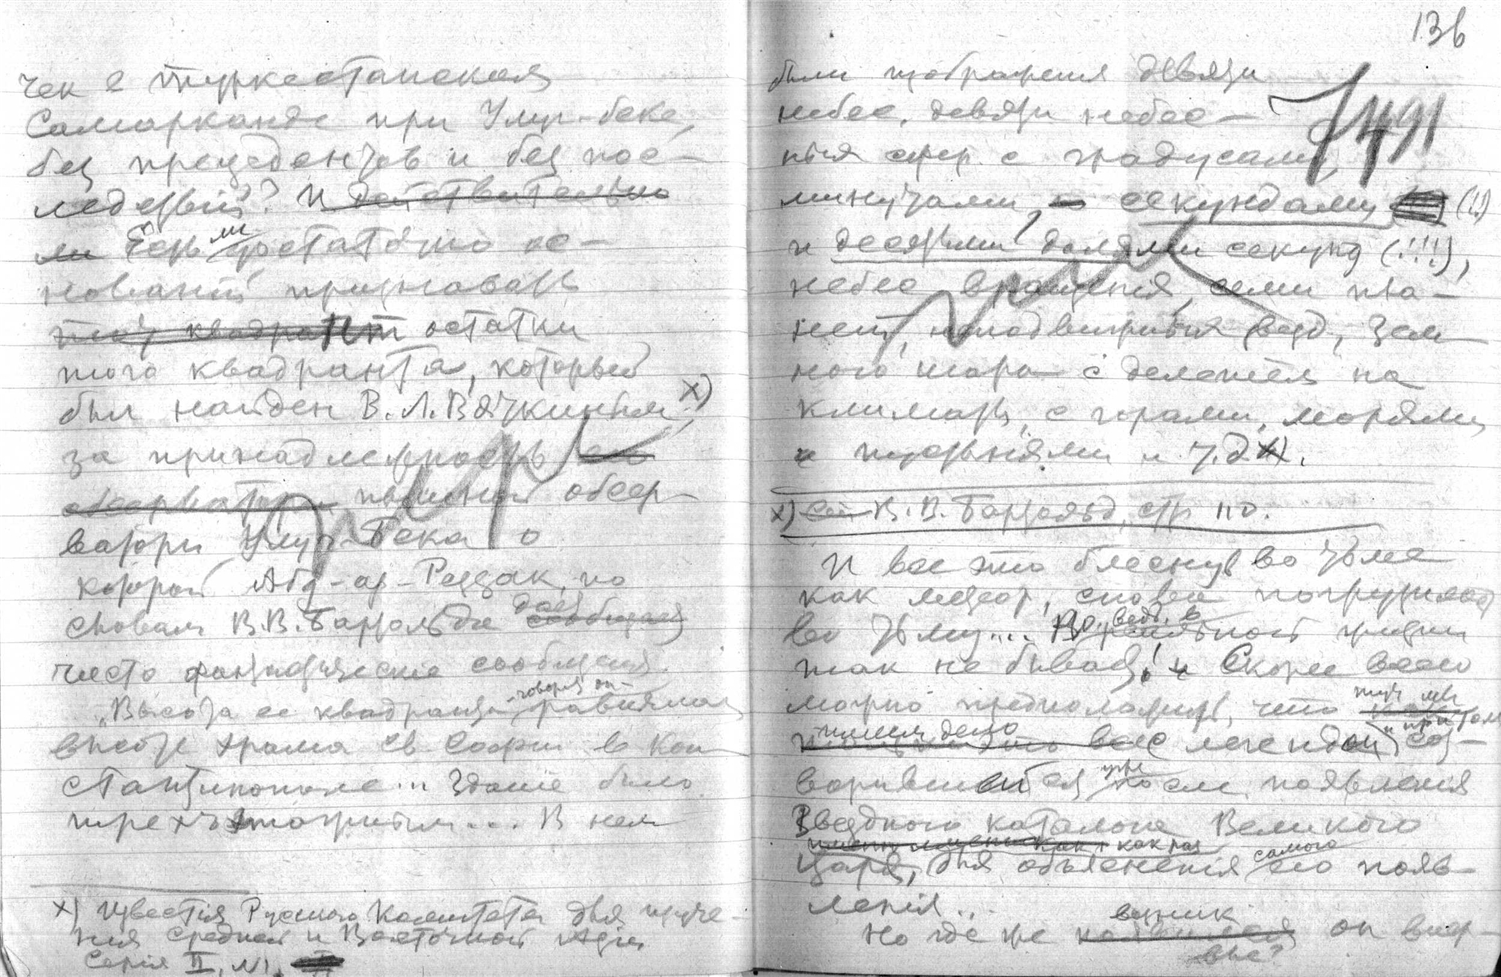 чек с туркестанская
Самарканде при Улуг-беке,
без прецедентов и без пос-
ледствий? И действительно
ли Есть ли достаточно ос-
нований признавать
этот квадрант остатки
того квадранта, который
был найден В. Л. Вяткиным x)
за принадлежность
обсерватор пышной обсер-
ватори Улуг-Бека о
которой Абд-ар-Реззак, по
словам В. В. Бартольда дает сообщает
чисто фантастические сообщения.
„Высота ее квадранта -говорит он- равнялась
высоте храма Св Софии в Кон-
стантинополе... Здание было
трехъэтажным... В нем
x) Известия Русского Комитета для изуче-
ния Средней и Восточной Азии
Серия II, №1.
136
7491
были изображения девяти
небес, девяти небес-
ных сфер с градусами,
минутами, секундами (!!)
и десятыми долями секунд (!!!),
небес вращения, семи пла-
нет, неподвижных звезд, зем-
ного шара с делением на
климаты, с горами, морями
и пустынями и т.д. x).
x) См В. В. Бартольд, стр 110.
И все это блеснув во тьме
как метеор, снова погрузилось
во тьму... Во звезд. в действительной жизни
так не бывает! и Скорее всего
можно предположить, что тут мы
имеем дело все с легендой, и притом соз-
ворившейся уже после появления
Звездного каталога Великого
как раз
Царя, для объяснения самого его появ-
ления...
Но где же возник появился он впер-
вые?